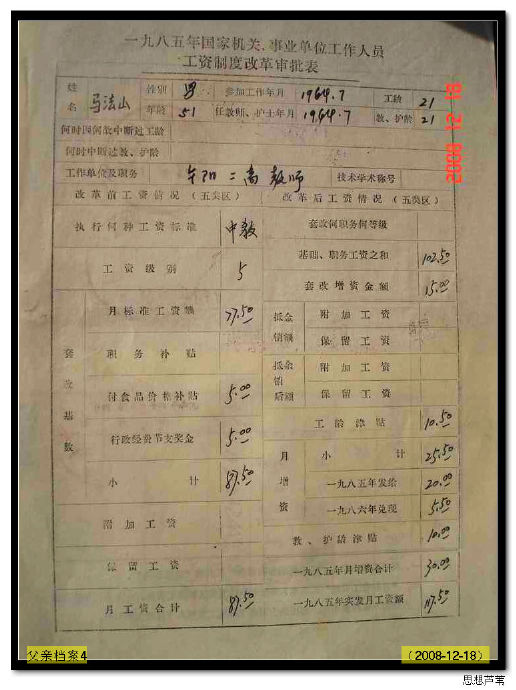 一九八五年国家机关、事业单位工作人员
工资制度改革审批表
姓名 马法山 性别 男 参加工作年月 1964.7 工龄 21
年龄 51 任教师、护士年月 1964.7 教、护龄 21
何时因何故中断过工龄
何时中断过教、护龄
工作单位及职务 牟阳二高教师 技术学术称号
改革前工资情况（五类区） 改革后工资情况（五类区）
执行何种工资标准 中教 套改何职务何等级
工资级别 5 基础、职务工资之和 102.50
套改增资金额 15.00
套改基数 月标准工资额 77.50 抵金销额 附加工资
保留工资
职务补贴 抵余销后额 附加工资
付食品价格补贴 5.00 保留工资
行政经费节支奖金 5.00 工龄津贴 10.50
小计 87.50 月增资 小计 25.50
一九八五年发给 20.00
附加工资 一九八六年兑现 5.50
教、护龄津贴 10.00
保留工资 一九八五年月增资合计 30.00
月工资合计 87.50 一九八五年实发月工资额 117.50
2008 12 18
父亲档案4
（2008-12-18）
思想芦苇